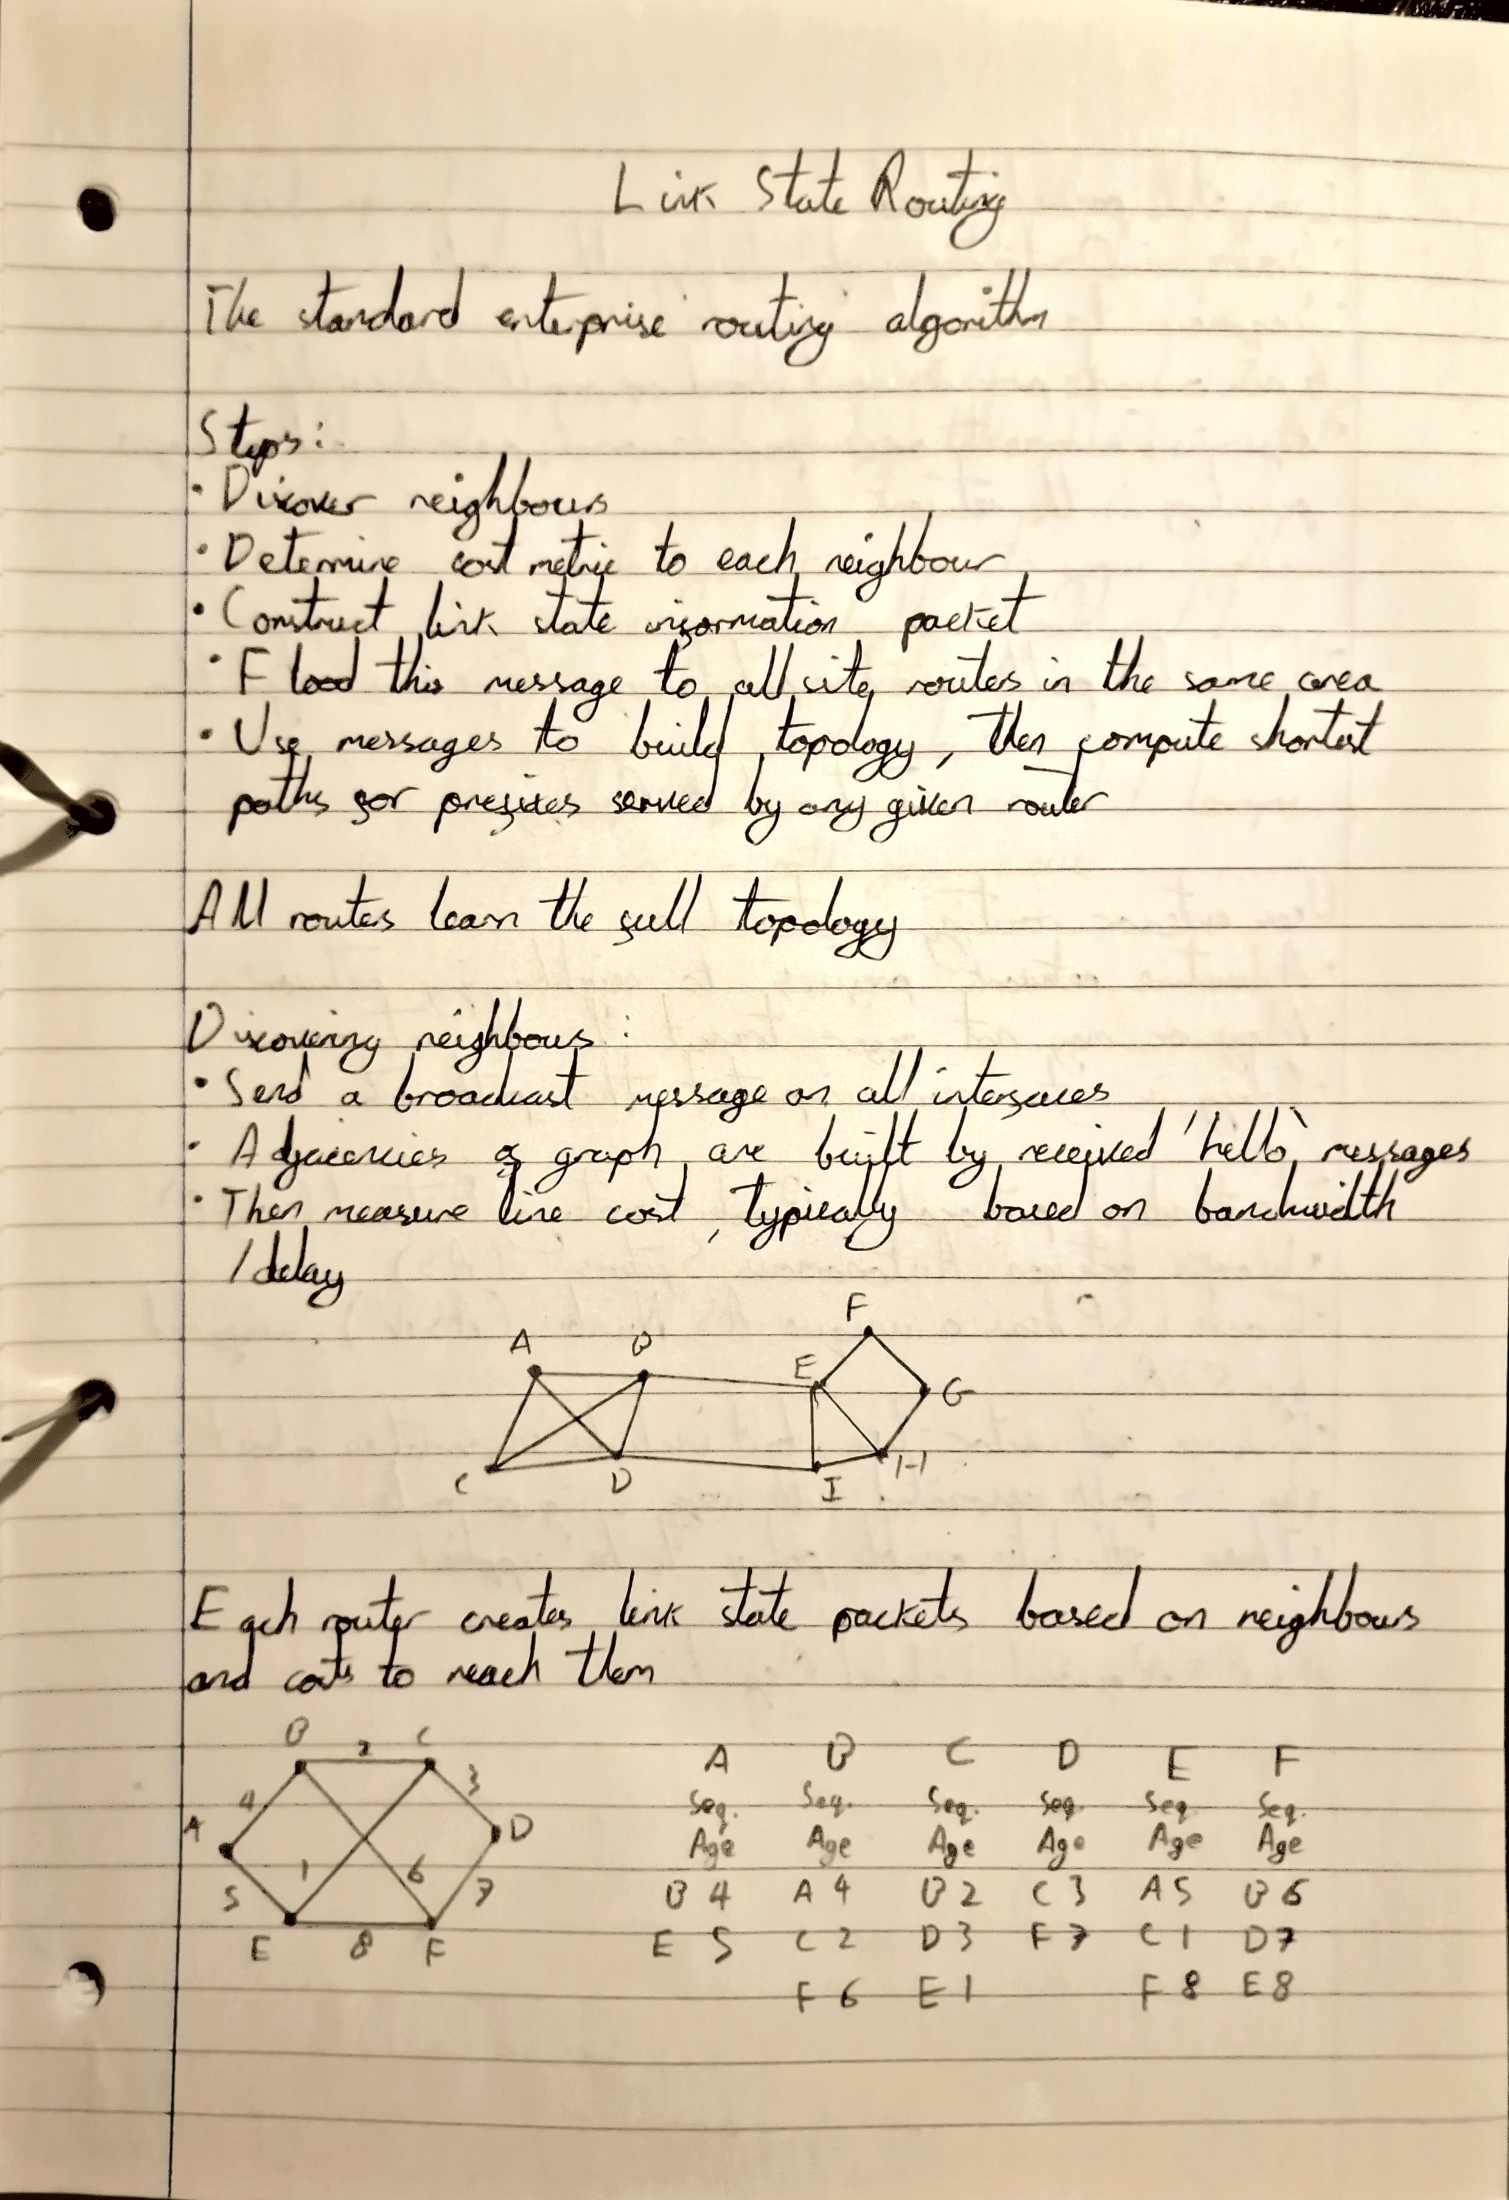 Link State Routing
The standard enterprise routing algorithm
Steps:
• Discover neighbours
• Determine cost metric to each neighbour
• Construct link state information packet
• Flood this message to all site routers in the same area
• Use messages to build topology, then compute shortest
paths for prefixes served by any given router
All routers learn the full topology
Discovering neighbours:
• Send a broadcast message on all interfaces
• Adjacencies of graph are built by received 'hello' messages
• Then measure line cost, typically based on bandwidth
/delay
F
A B E G
C D I H
Each router creates link state packets based on neighbours
and costs to reach them
B 2 C
4 3
A D
5 1 6 7
E 8 F
A B C D E F
Seq. Seq. Seq. Seq. Seq. Seq.
Age Age Age Age Age Age
B 4 A 4 B 2 C 3 A 5 B 6
E 5 C 2 D 3 F 7 C 1 D 7
F 6 E 1 F 8 E 8